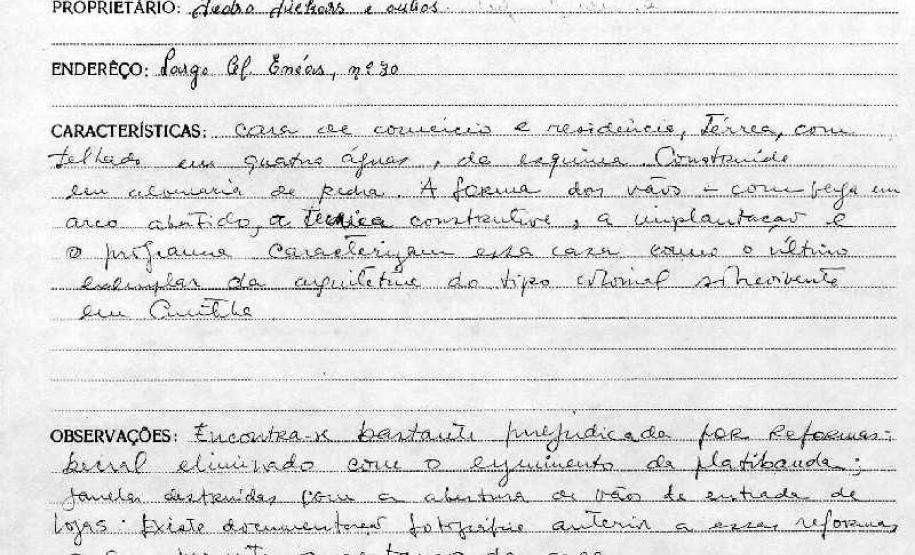 PROPRIETÁRIO: e outros.
ENDERÊÇO: Largo Cel. Enéas, nº 30
CARACTERÍSTICAS: Casa de comércio e residência, térrea, com
telhado em quatro águas, de esquina. Construída
em alvenaria de pedra. A forma dos vãos - com verga em
arco abatido, a técnica construtiva, a implantação e
o programa caracterizam essa casa como o último
exemplar da arquitetura do tipo colonial sobrevivente
em Curitiba
OBSERVAÇÕES: Encontra-se bastante prejudicada por reformas:
beiral eliminado com o erguimento da platibanda;
janelas destruídas com a abertura de vão de entrada de
lojas. Existe documentação fotográfica anterior a essas reformas